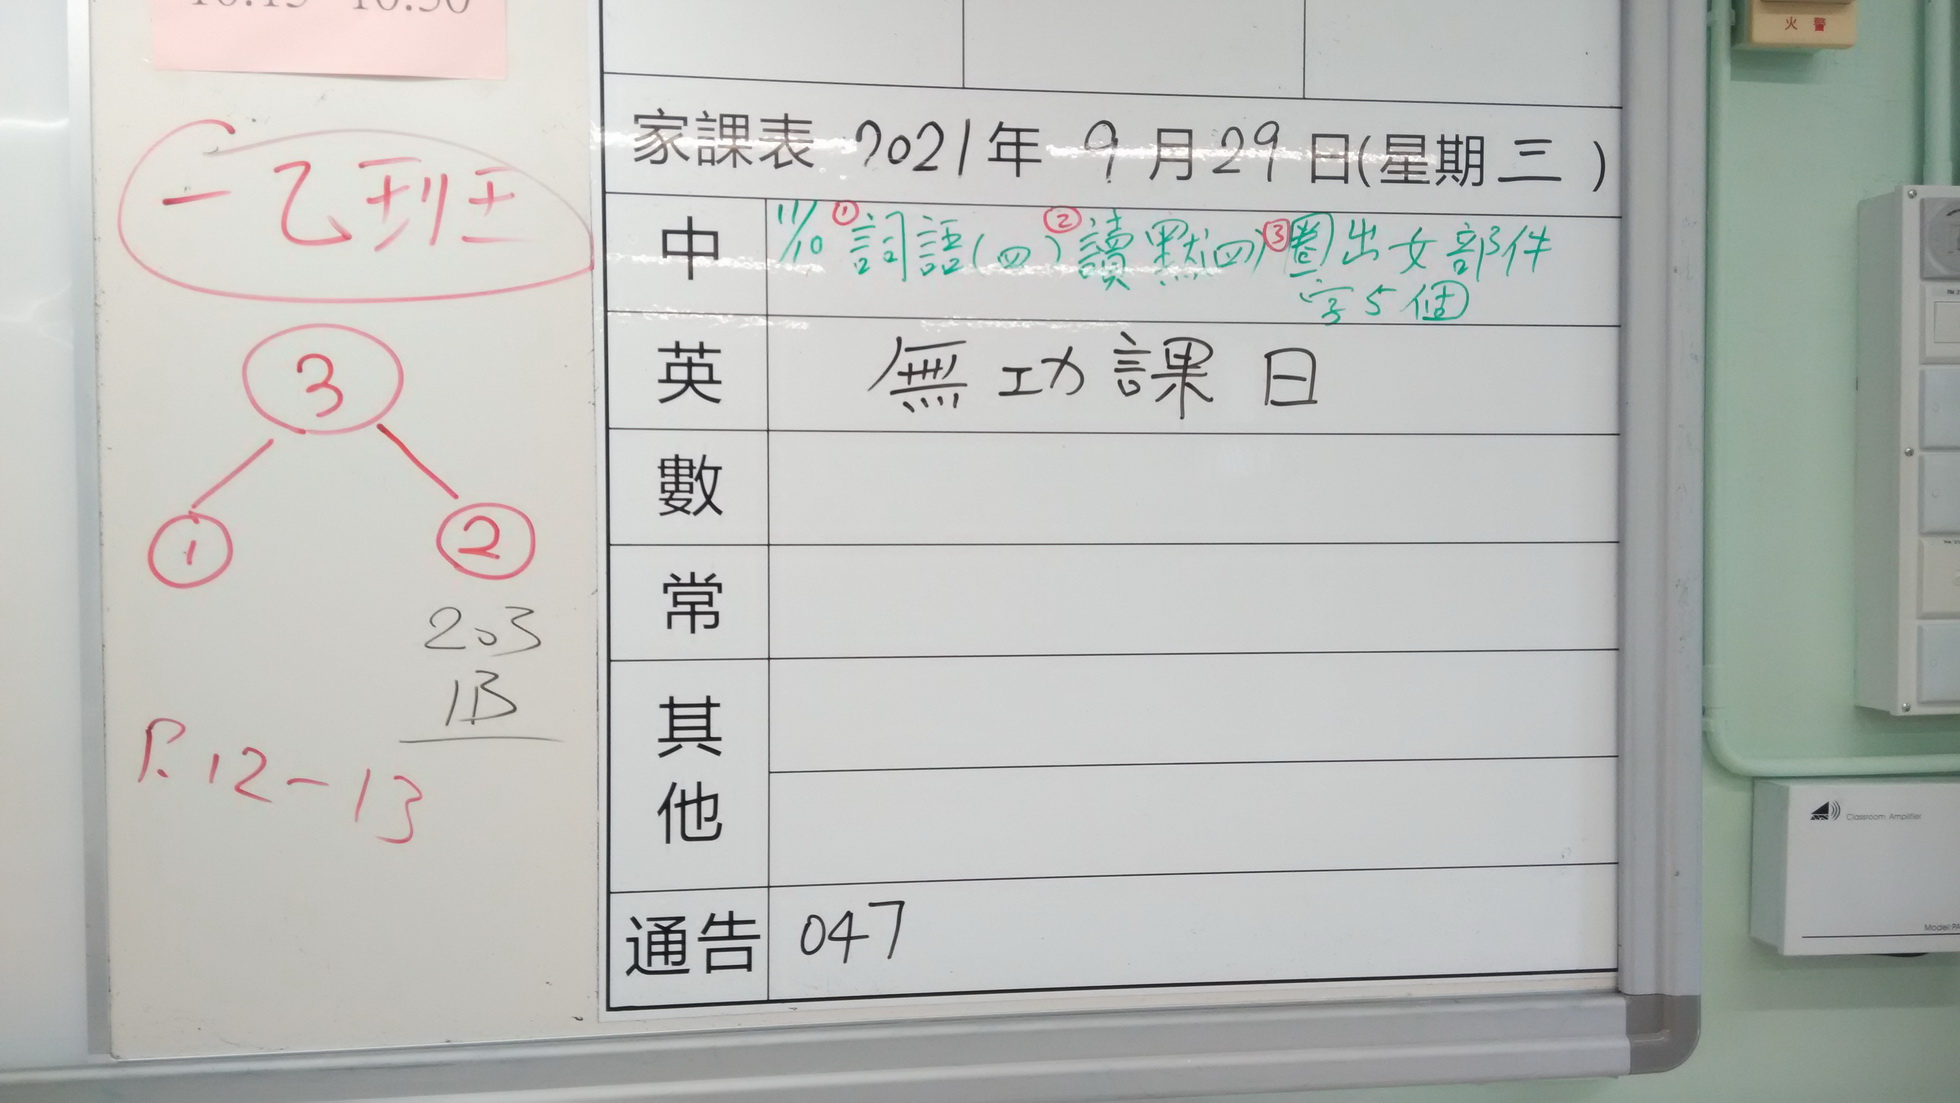 一乙班
3
1
2
203
1B
P.12-13
家課表 2021年 9月29日(星期三)
中
11/10 ①詞語(四) ②讀默(四) ③圈出女部件
字5個
英
無功課日
數
常
其
他
通告
047
火警
Classroom Amplifier